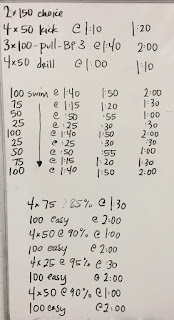 2 x 150 choice
4 x 50 kick @ 1:10 1:20
3 x 100 - pull - BP3 @ 1:40 2:00
4 x 50 drill @ 1:00 1:10
100 swim @ 1:40 1:50 2:00
75 @ 1:15 1:20 1:30
50 @ :50 :55 1:00
25 @ :25 :30 :30
100 @ 1:40 1:50 2:00
25 @ :25 :30 :30
50 @ :50 :55 1:00
75 @ 1:15 1:20 1:30
100 @ 1:40 1:50 2:00
4 x 75 : 25% @ 1:30
100 easy @ 2:00
4 x 50 @ 90% @ 1:00
100 easy @ 2:00
4 x 25 @ 95% @ 30
100 easy @ 2:00
4 x 50 @ 90% @ 1:00
100 easy @ 2:00